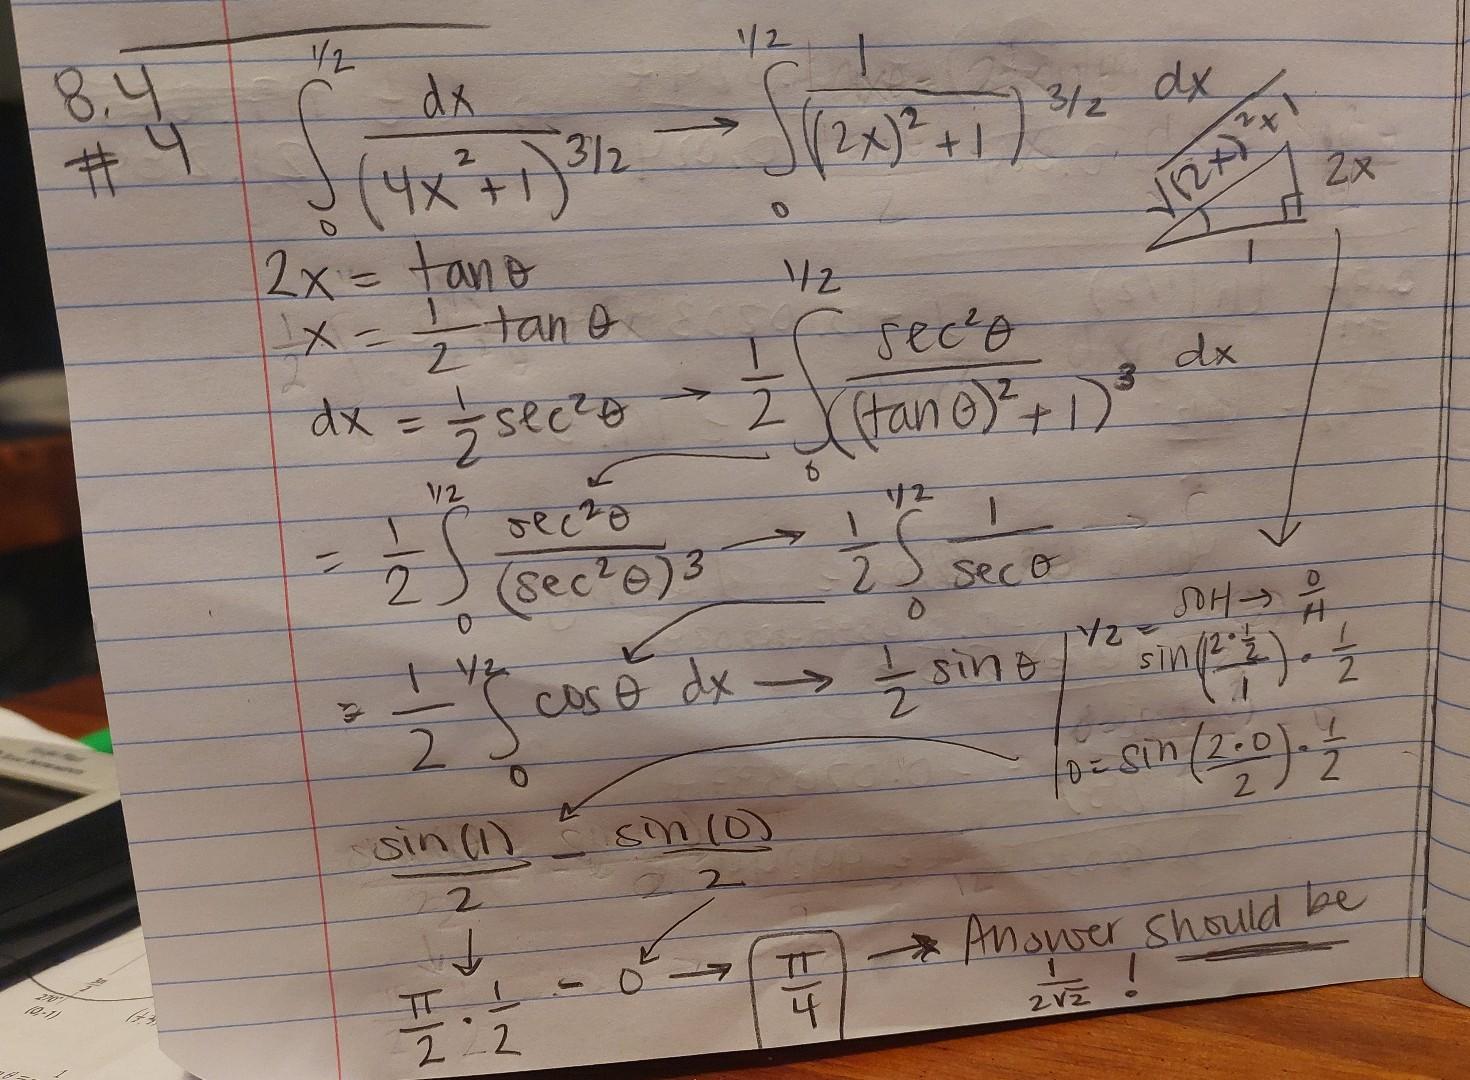 8.4
# 4
∫₀^1/2 dx / (4x² + 1)^3/2 → ∫₀^1/2 1 / ((2x)² + 1)^3/2 dx
2x
1
2x = tan θ
x = 1/2 tan θ
dx = 1/2 sec²θ → 1/2 ∫₀^1/2 sec²θ / ((tan θ)² + 1)³ dx
= 1/2 ∫₀^1/2 sec²θ / (sec²θ)³ → 1/2 ∫₀^1/2 1 / sec θ
= 1/2 ∫₀^1/2 cos θ dx → 1/2 sin θ |
SOH → O/H
1/2 = sin(2·1/2 / 1) · 1/2
0 = sin(2·0 / 2) · 1/2
sin(1)/2 − sin(0)/2
π/2 · 1/2 − 0 → π/4 → Answer should be
1/2√2 !
270°
(0,-1)